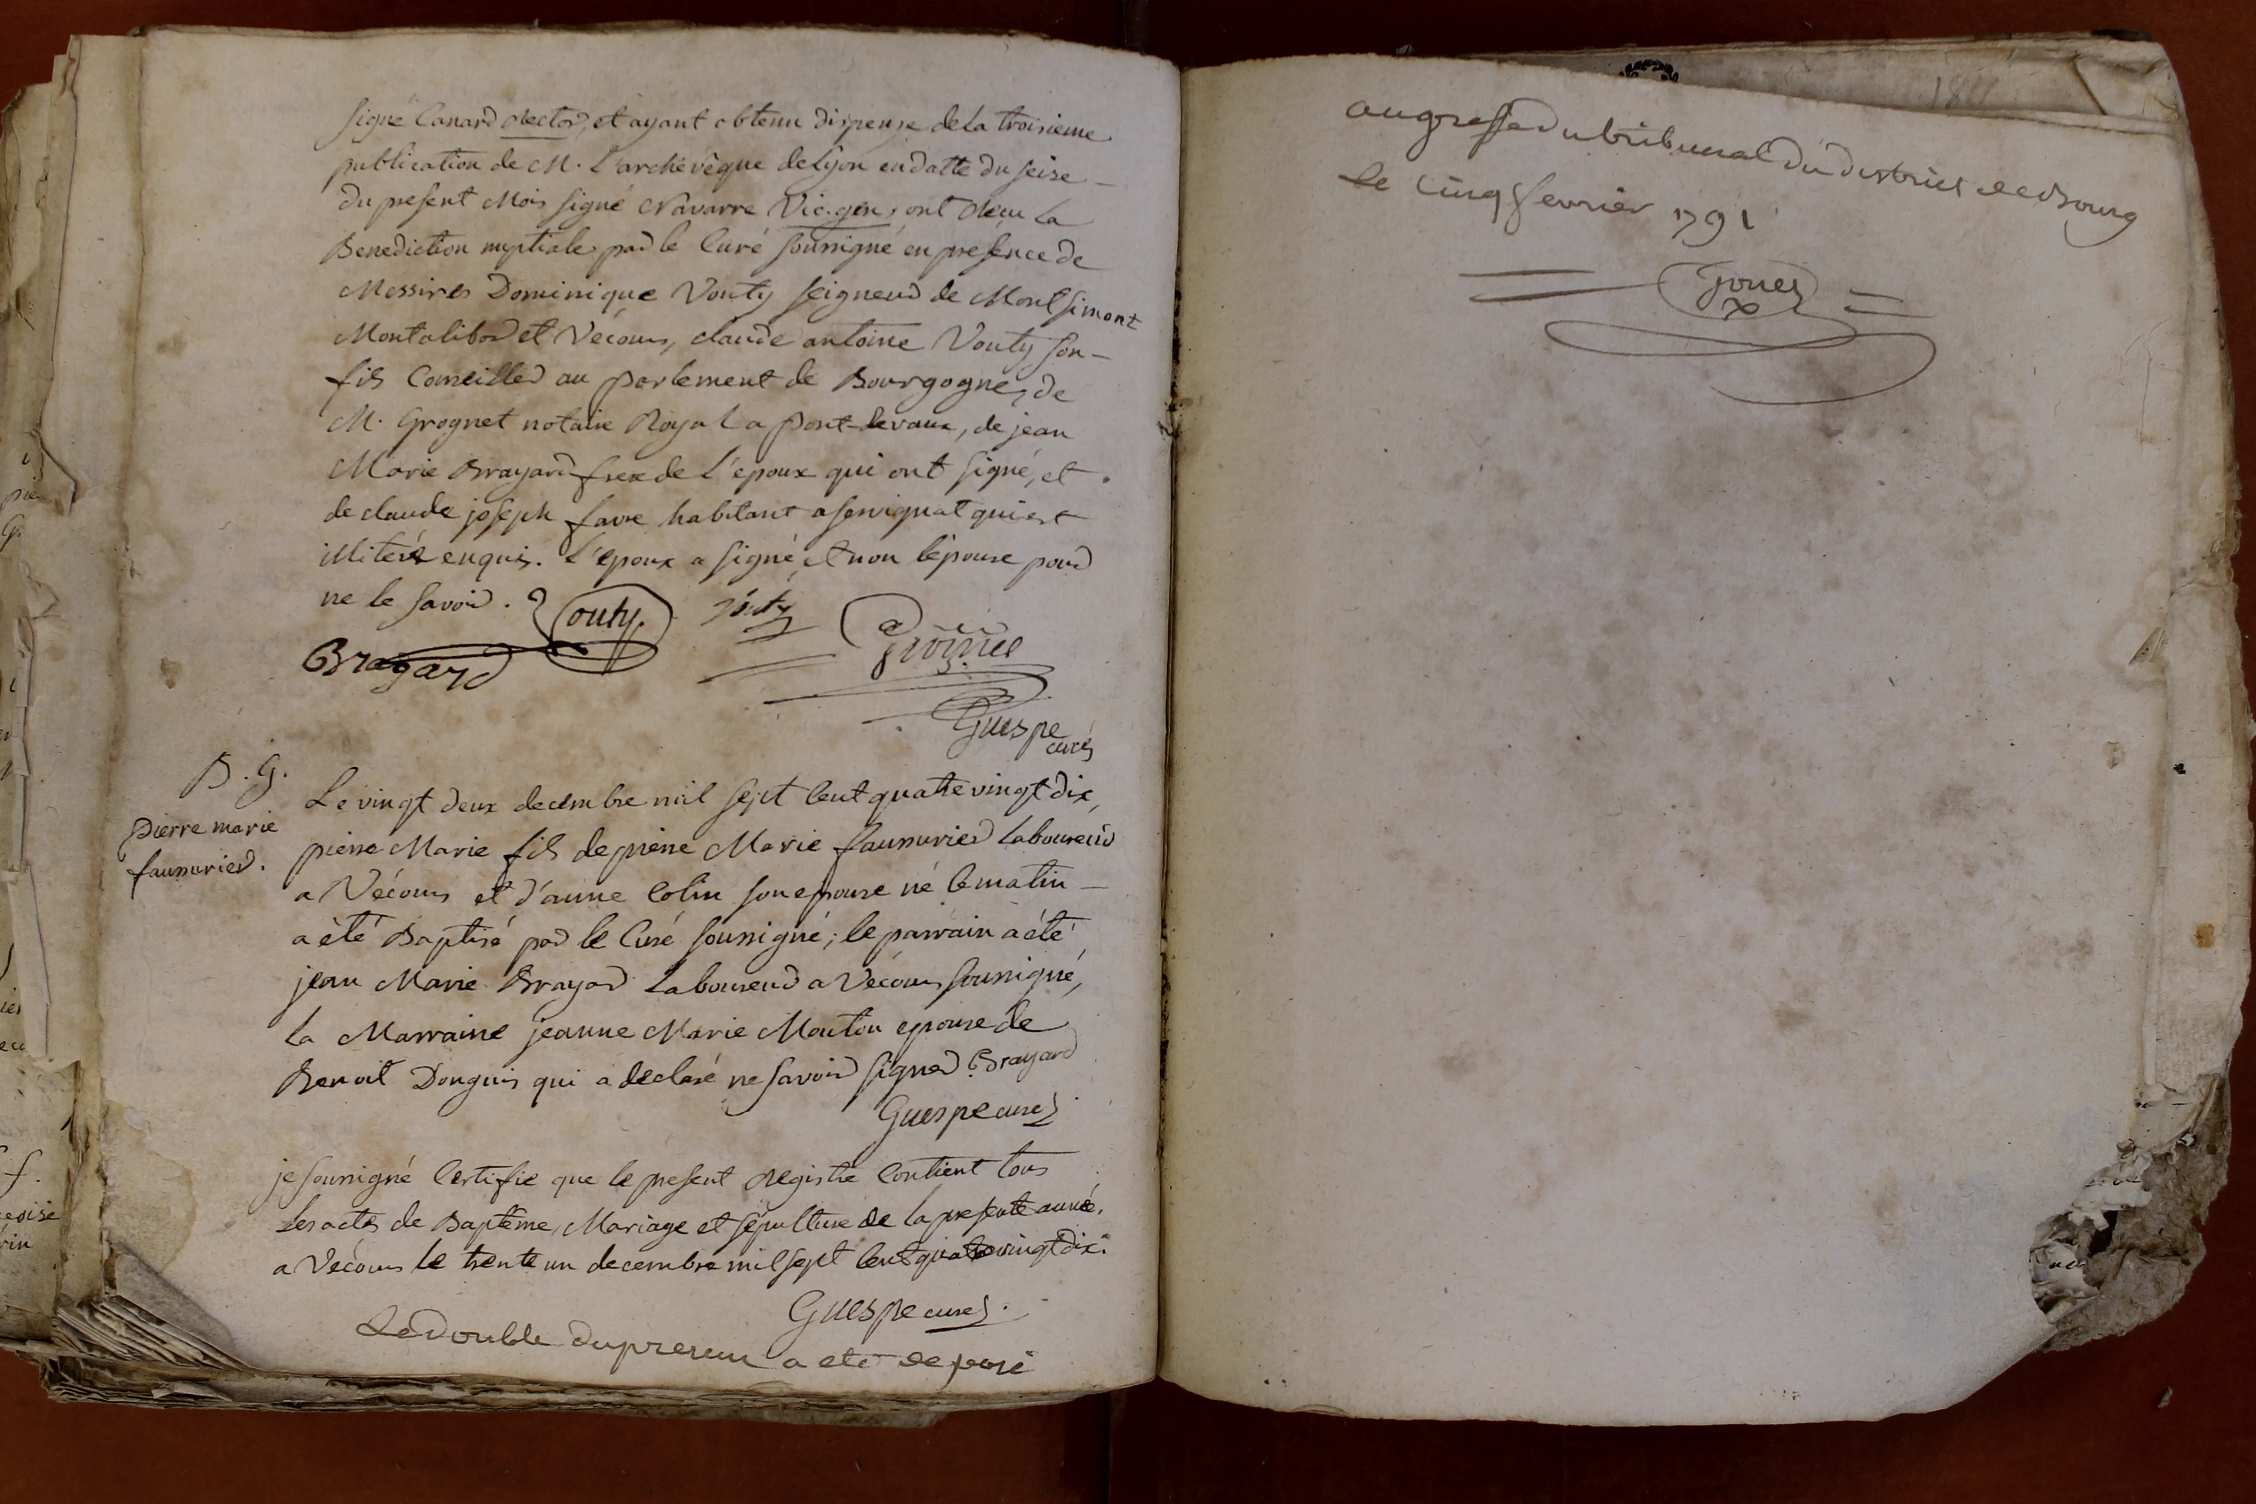 signé Canard Rector, et ayant obtenu dispense de la troisieme
publication de M. L'archevêque de Lyon en datte du seise
du present Mois signé Navarre Vic. gen, ont Reçu la
Benediction nuptiale par le Curé soussigné en presence de
Messires Dominique Vouty seigneur de Montsimont
Montalibor et Vécours, claude antoine Vouty son
fils Conseiller au Parlement de Bourgogne, de
M. Grognet notaire Royal a Pont-devaux, de jean
Marie Brayard frere de l'epoux qui ont signé, et
de claude joseph favre habitant a servignat qui est
illiteré enquis. L'epoux a signé, et non l'epouse pour
ne le savoir.
Vouty Vouty
Brayard
Guespe
curé
B. G.
Pierre marie
faussurier.
Le vingt deux decembre mil sept Cent quatre vingt dix,
pierre Marie fils de pierre Marie faussurier Laboureur
a Vécours et d'anne Colin son epouse né le matin
a été Baptisé par le Curé soussigné; le parrain a été
jean Marie Brayard Laboureur a Vécours soussigné,
la Marraine jeanne Marie Mouton epouse de
Benoit Donguis qui a declaré ne savoir signer. Brayard
Guespe curé
je soussigné Certifie que le present Registre Contient tous
les actes de Baptême, Mariage et sépulture de la presente année.
a Vécours le trente un decembre mil sept Cent quatre vingt dix.
Guespe curé.
Le Double du present a eté deposé
au greffe du tribunal du district de Bourg
le cinq fevrier 1791